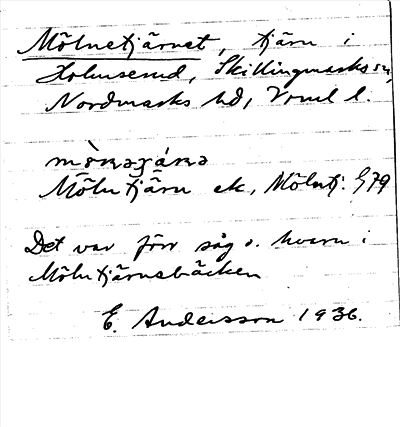 Mölnetjärnet, tjärn i
Holmserud, Skillingmarks sn,
Nordmarks hd, Vrml l.
Mölntjärn ek, Mölntj. G79
Det var förr såg o. kvarn i
Mölntjärnsbäcken
E. Andersson 1936.